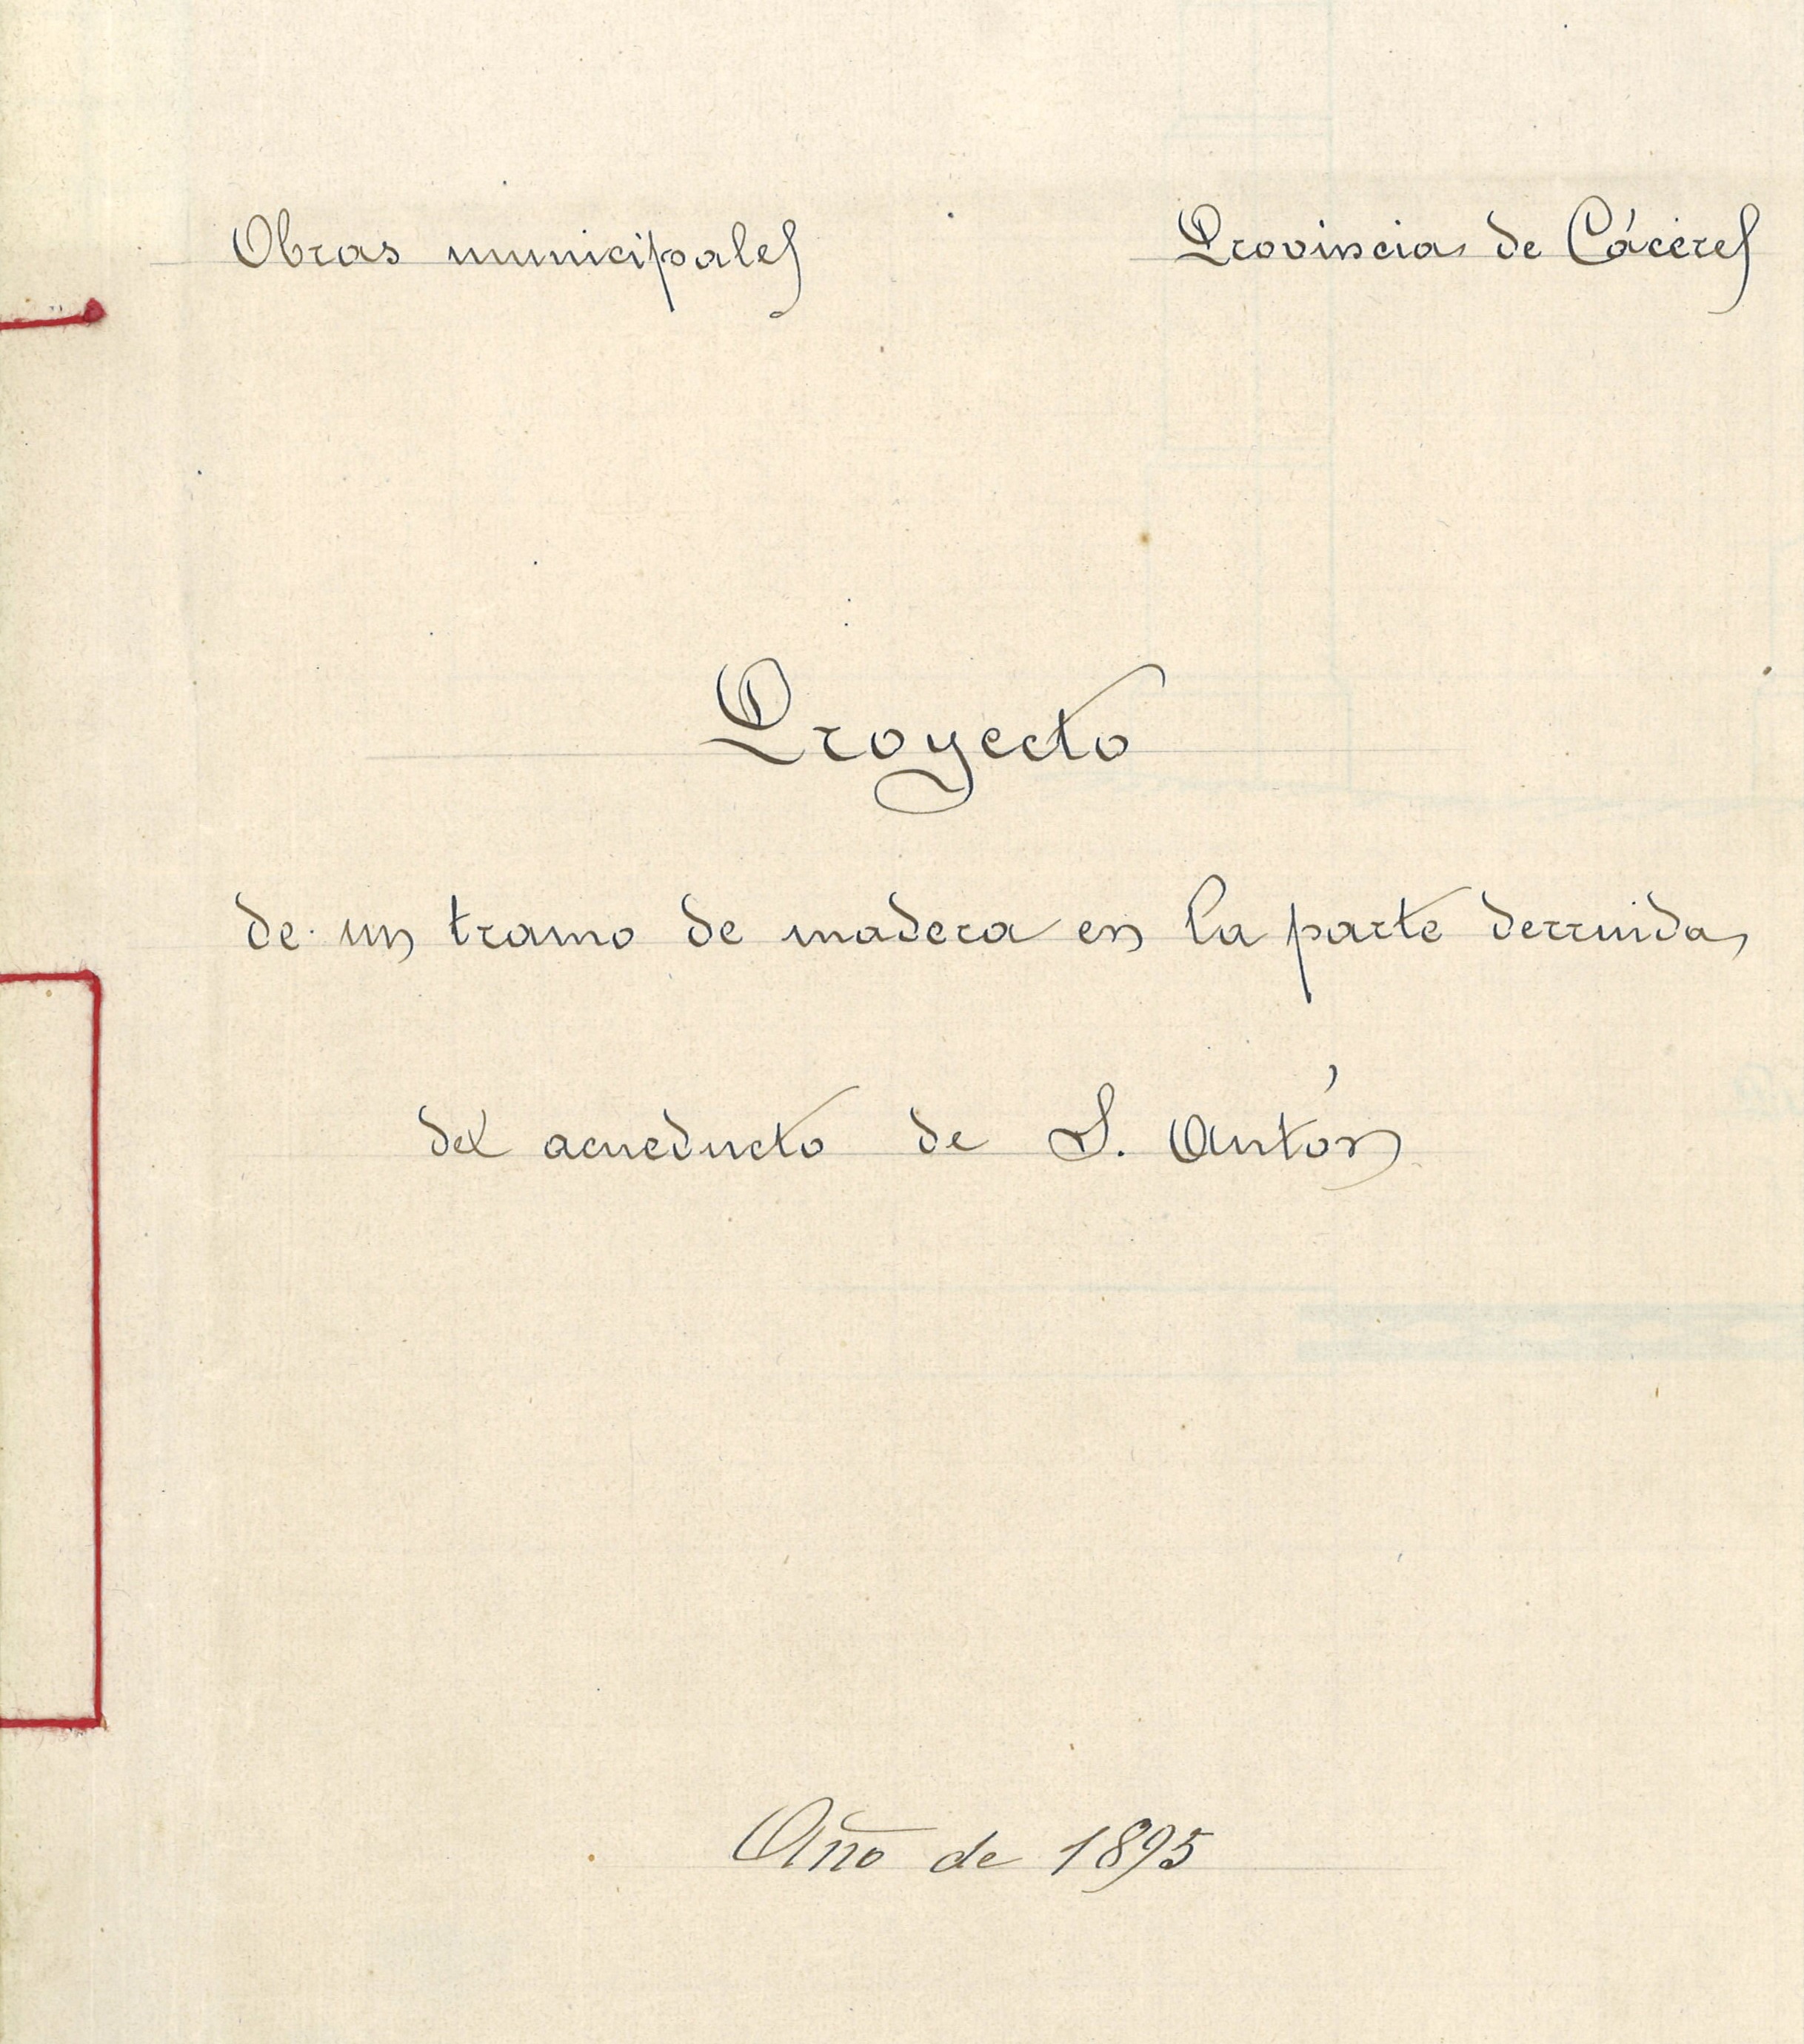 Obras municipales Provincia de Cáceres
Proyecto
de un tramo de madera en la parte derruida
del acueducto de S. Antón
Año de 1895